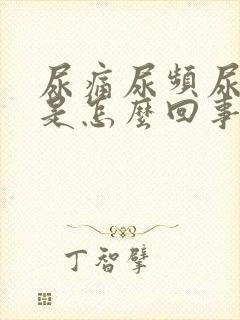 尿痛尿頻尿
是怎麼回事
丁智擘